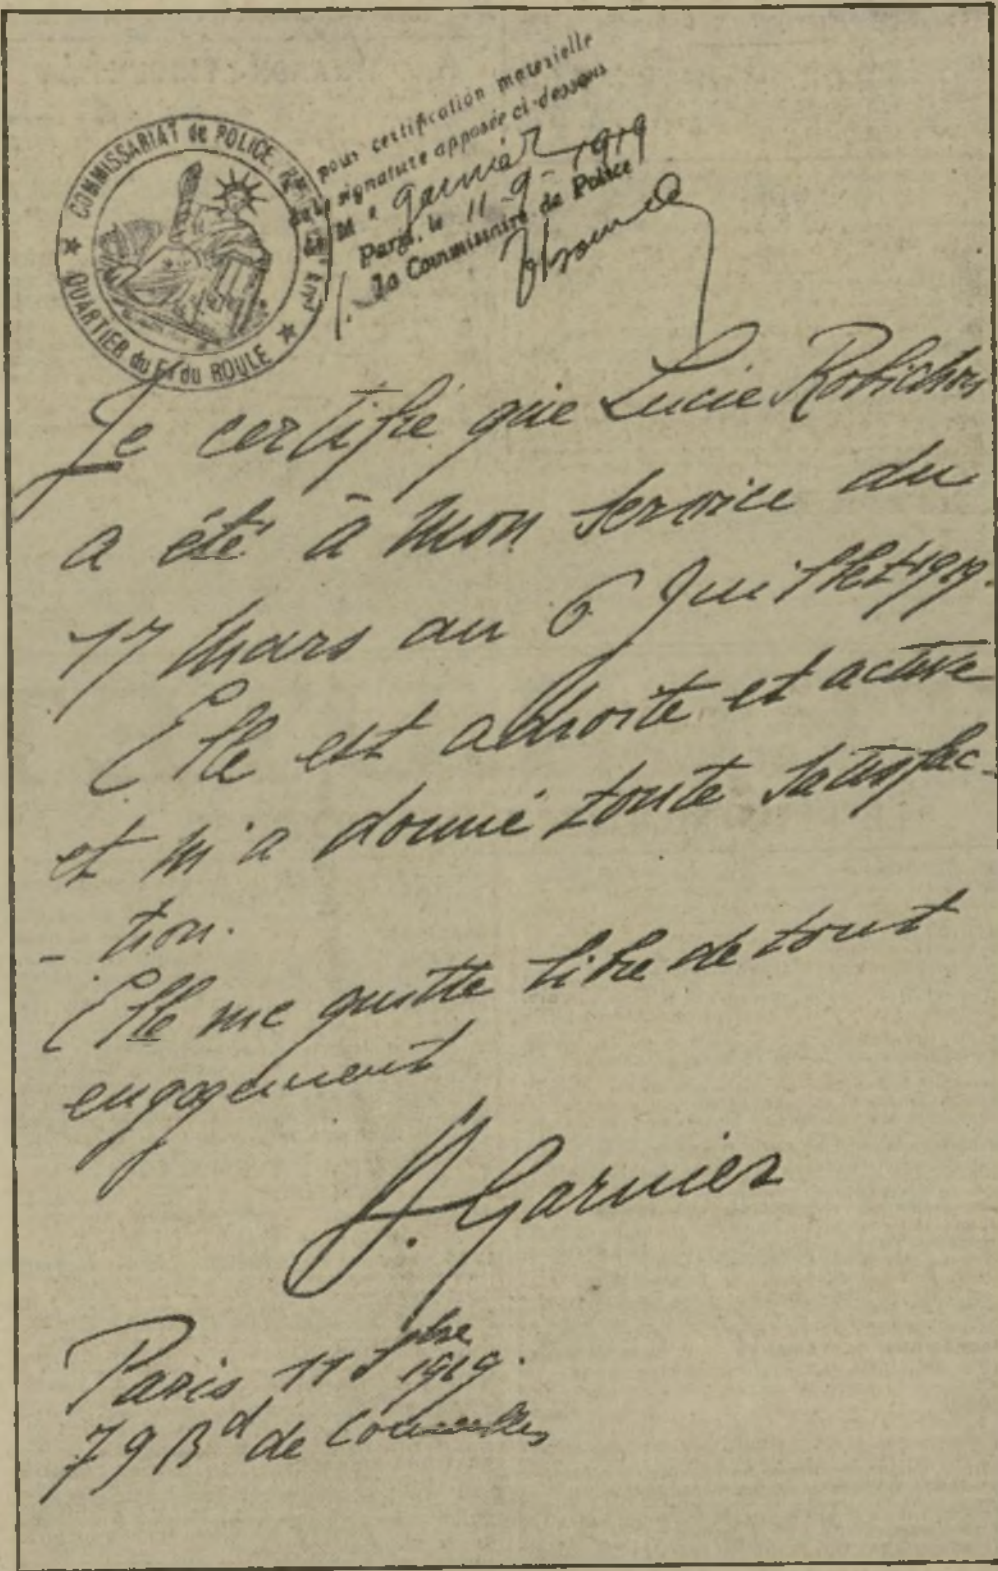 COMMISSARIAT de POLICE
QUARTIER du Fg du ROULE
pour certification materielle
de la signature apposée ci-dessous
de M Garnier
Paris, le 11-9-1919
Le Commissaire de Police
Je certifie que Lucie Robichon
a été à mon service du
17 Mars au 6 Juillet 1919.
Elle est adroite et active
et m'a donné toute satisfac-
-tion.
Elle me quitte libre de tout
engagement
J. Garnier
Paris 11 7bre
1919.
79 Bd de Courcelles